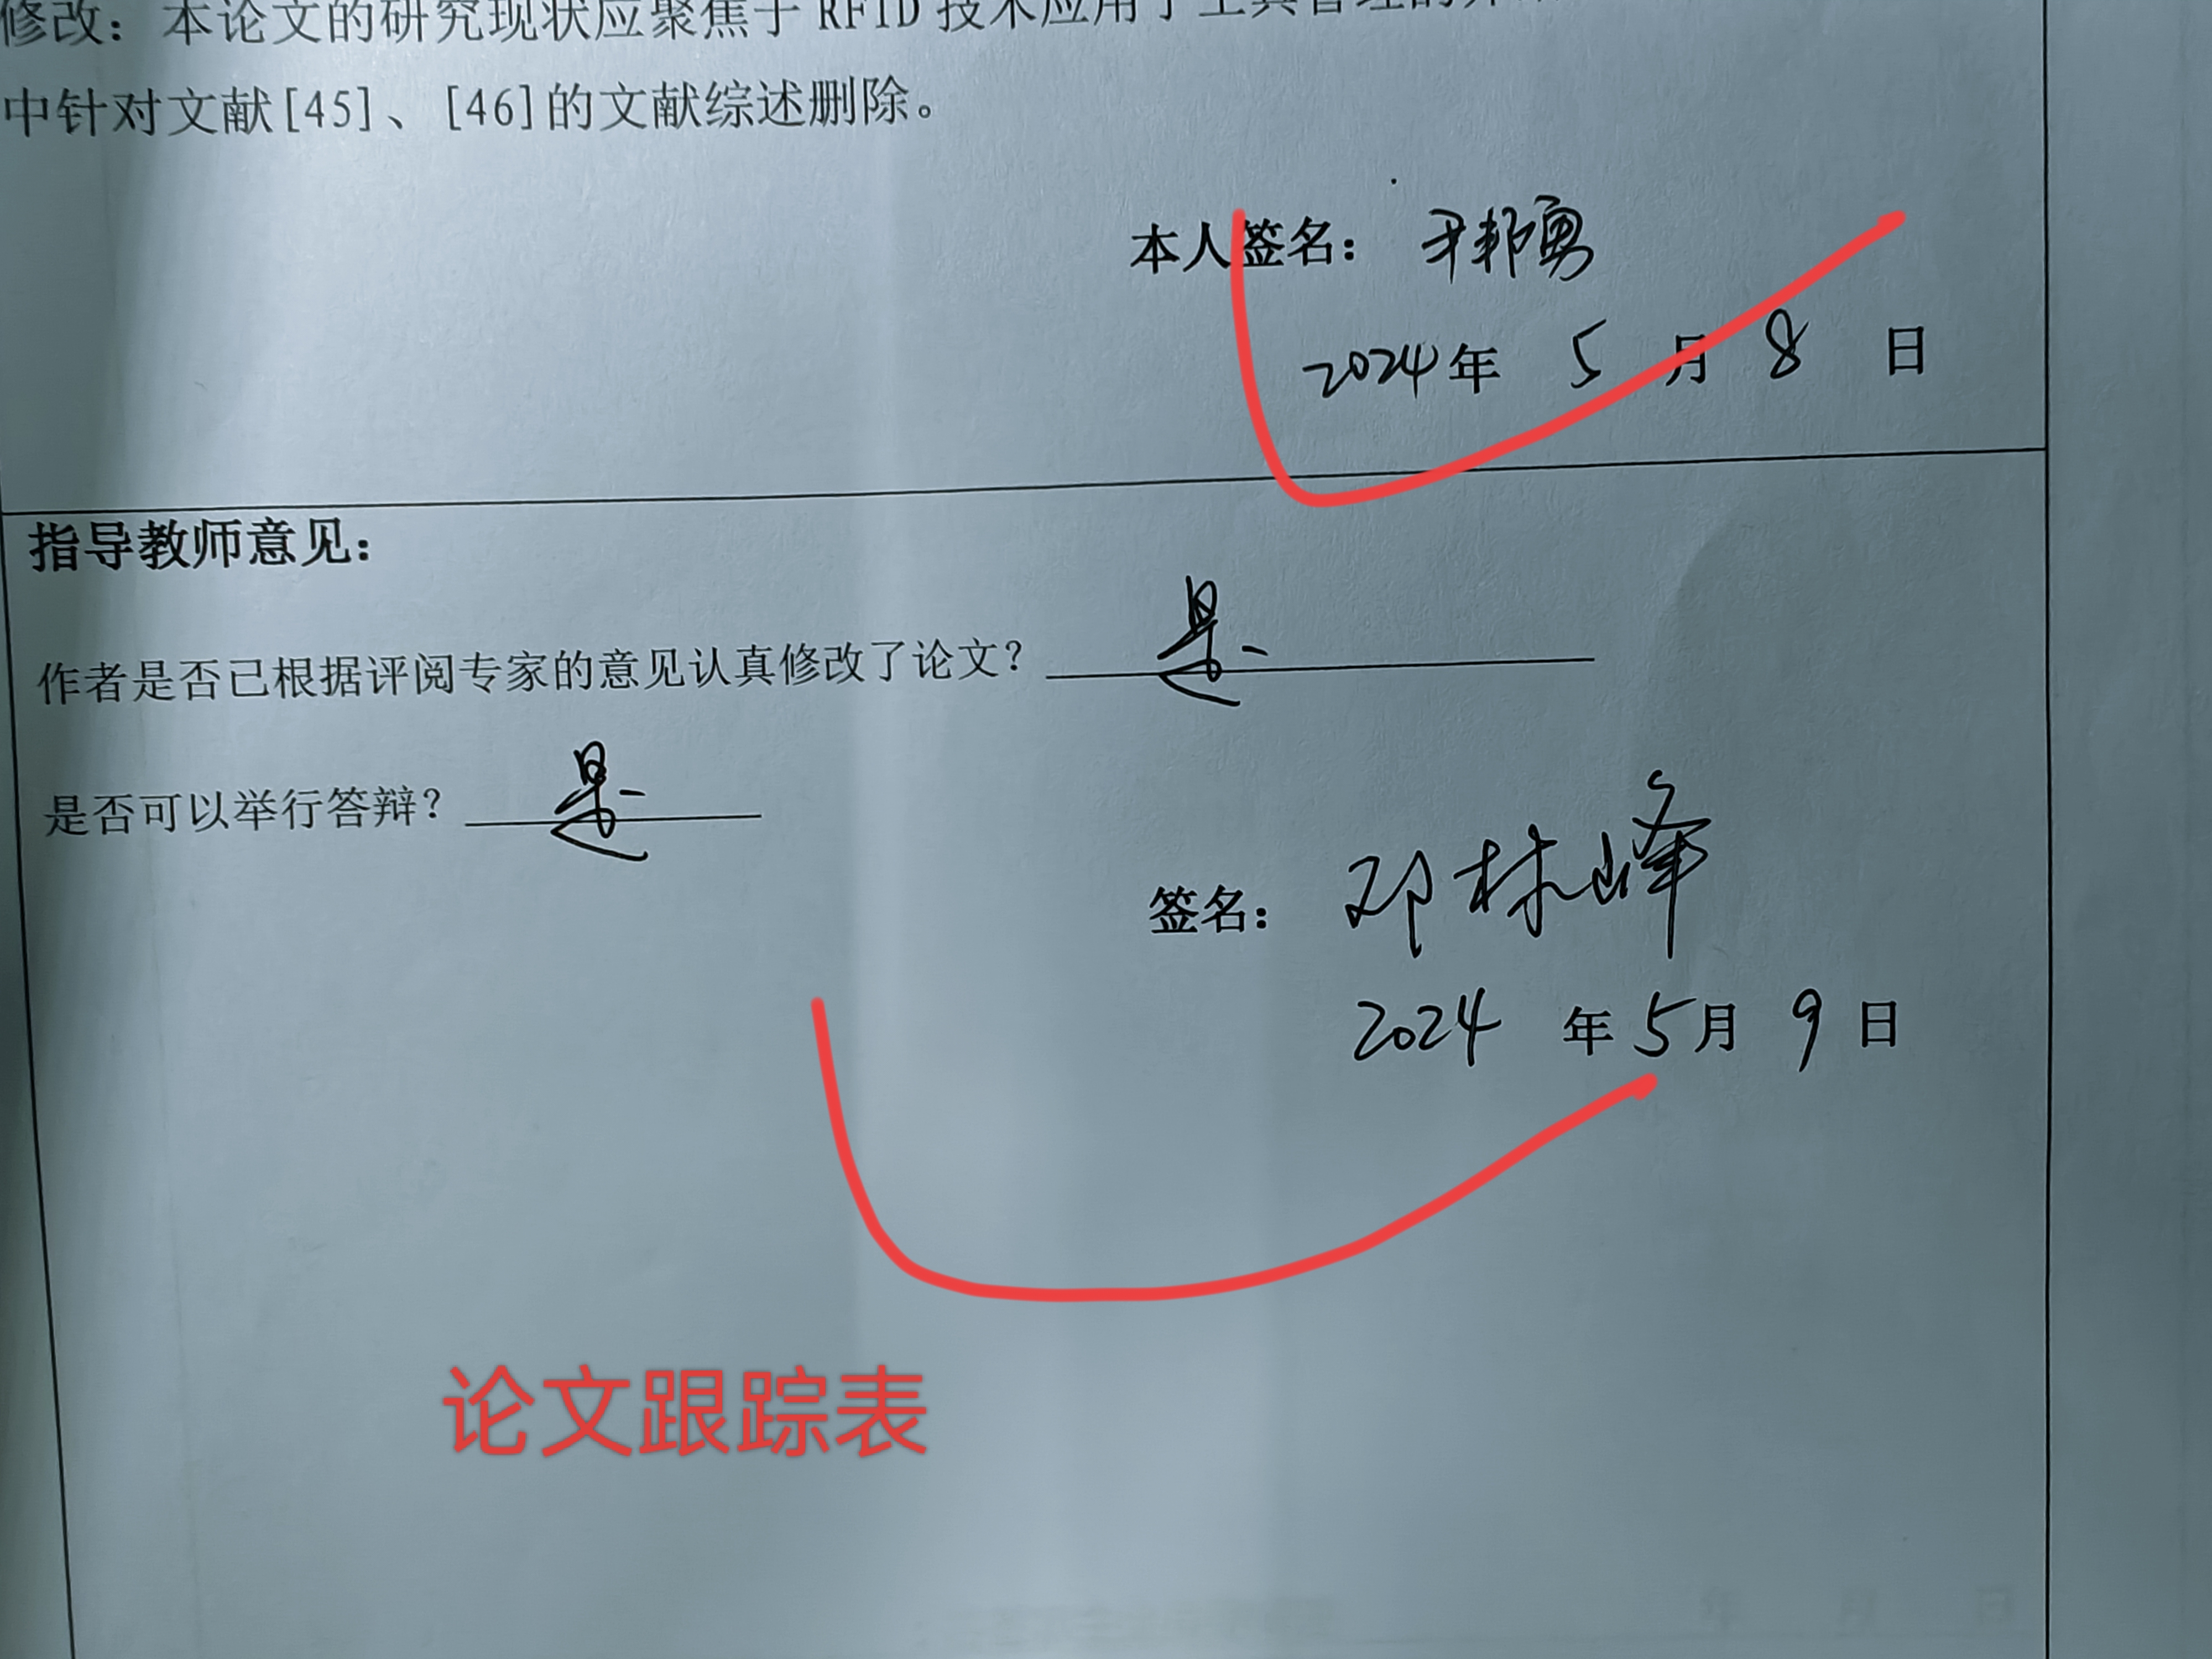 修改：本论文的研究现状应聚焦于RFID技术应用于工具管理的
中针对文献[45]、[46]的文献综述删除。
本人签名：尹邦勇
2024年 5 月 8 日
指导教师意见：
作者是否已根据评阅专家的意见认真修改了论文？ 是
是否可以举行答辩？ 是
签名：邓林峰
2024 年 5 月 9 日
论文跟踪表